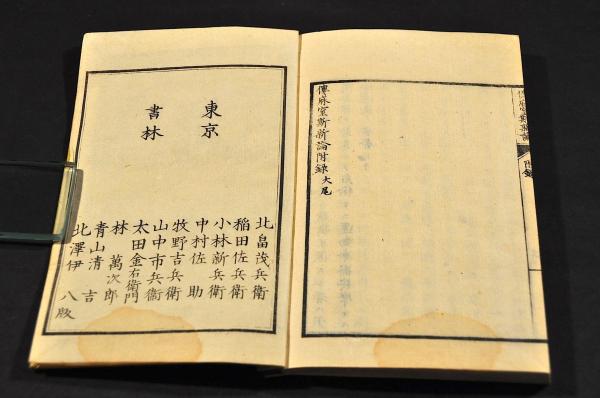 附錄
僂麻窒斯新論附錄大尾
東京
書林
北畠茂兵衛
稲田佐兵衛
小林新兵衛
中村佐助
牧野吉兵衛
山中市兵衛
太田金右衛門
林萬次郎
青山清吉
北澤伊八版